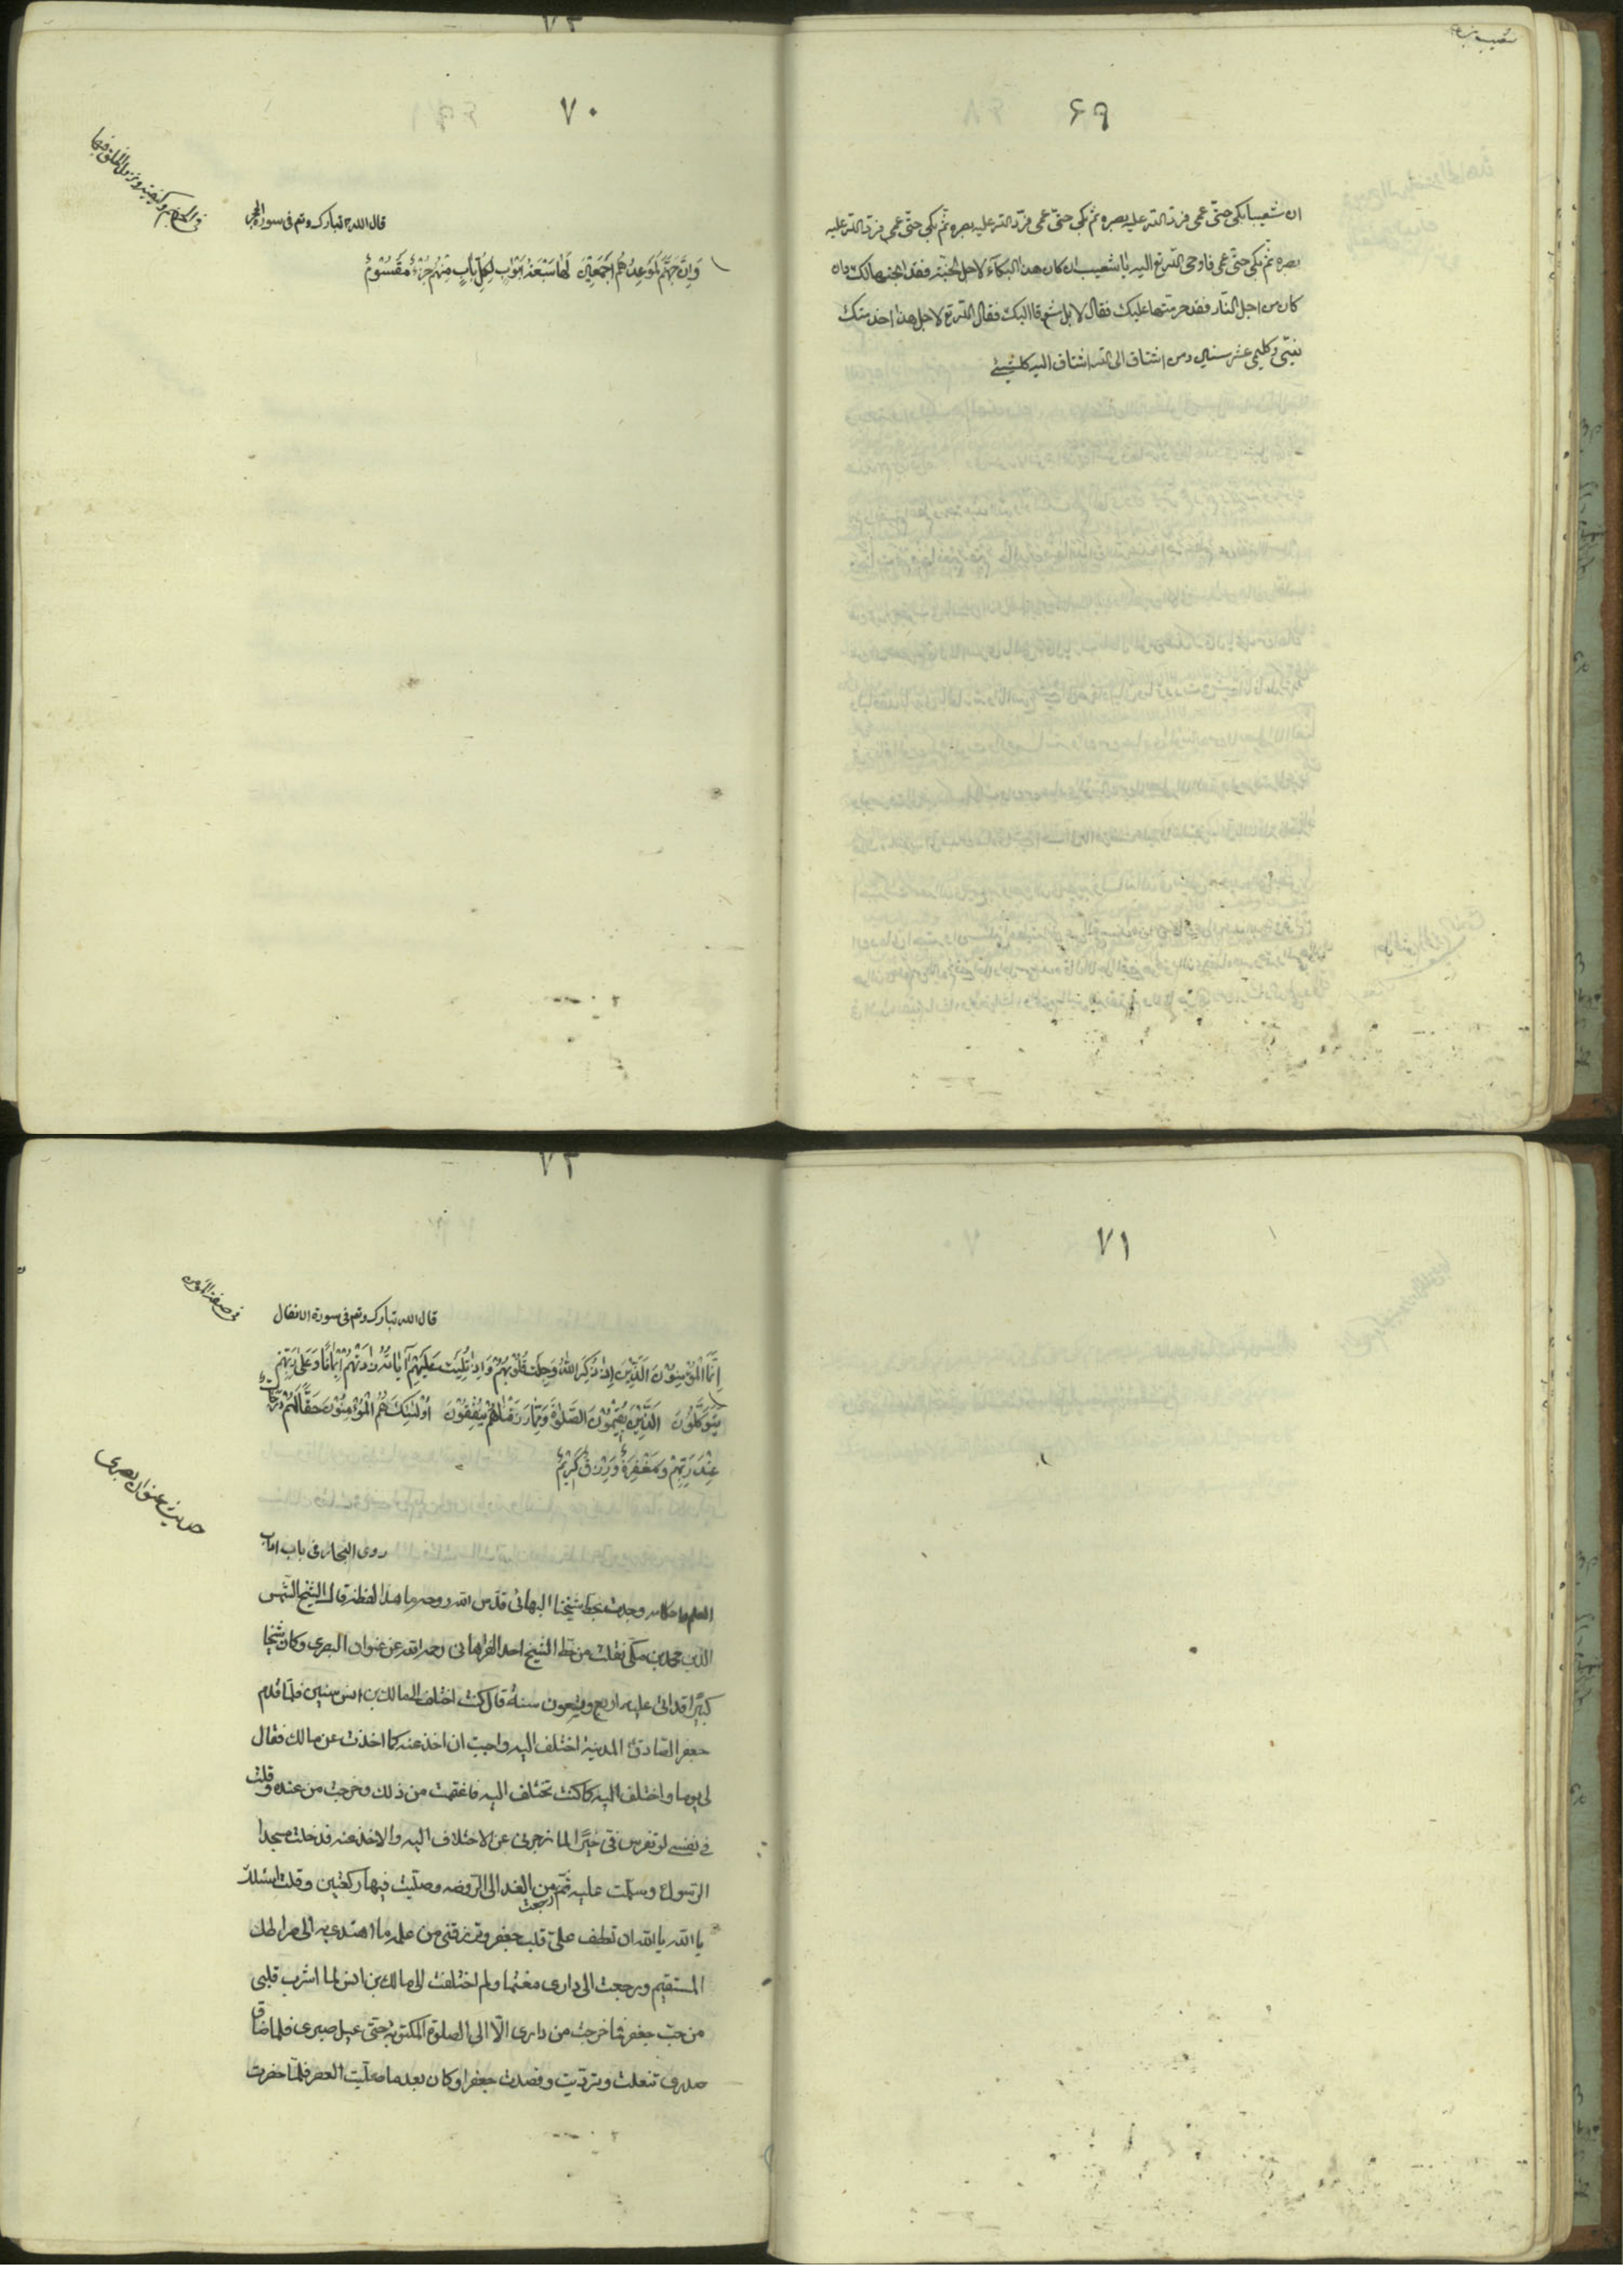 ۶۹
ان شعيبا بكى حتّى عمى فردّ الله عليه بصره ثم بكى حتّى عمى فردّ الله عليه بصره ثم بكى حتّى عمى فردّ الله عليه
بصره ثم بكى حتّى عمى فاوحى الله تع اليه يا شعيب ان كان هذا البكاء لاجل الجنّة فقد ابحتها لك وان
كان من اجل النّار فقد حرمتها عليك فقال لا بل شوقا اليك فقال الله تع لاجل هذا اخدمتك
نبيّى وكليمى عشر سنين ومن اشتاق الى الله اشتاق اليه كلشيئ
۷۰
قال الله تبارك وتع فى سورة الحجر
وَاِنَّ جَهَنَّمَ لَمَوْعِدُهُمْ اَجْمَعِيْنَ لَهَا سَبْعَةُ اَبْوَابٍ لِكُلِّ بَابٍ مِنْهُمْ جُزْءٌ مَقْسُوْمٌ
۷۱
۷۲
فى صفة المؤمن
قال الله تبارك وتع فى سورة الانفال
اِنَّمَا الْمُؤْمِنُوْنَ الَّذِيْنَ اِذَا ذُكِرَ اللّٰهُ وَجِلَتْ قُلُوْبُهُمْ وَاِذَا تُلِيَتْ عَلَيْهِمْ آيَاتُهُ زَادَتْهُمْ اِيْمَانًا وَعَلٰى رَبِّهِمْ
يَتَوَكَّلُوْنَ الَّذِيْنَ يُقِيْمُوْنَ الصَّلٰوةَ وَمِمَّا رَزَقْنَاهُمْ يُنْفِقُوْنَ اُوْلٰئِكَ هُمُ الْمُؤْمِنُوْنَ حَقًّا لَهُمْ دَرَجَاتٌ
عِنْدَ رَبِّهِمْ وَمَغْفِرَةٌ وَرِزْقٌ كَرِيْمٌ
حديث عنوان بصرى
روى البحار فى باب اداب
العلم واحكامه وجدت بخط شيخنا البهائى قدّس الله روحه ما هذا لفظه قال الشيخ الشمس
الدين محمد بن مكى نقلت من خط الشيخ احمد الفراهانى رحمه الله عن عنوان البصرى وكان شيخا
كبيرًا قد اتى عليه اربع وتسعون سنة قال كنت اختلف الى مالك بن انس سنين فلمّا قدم
جعفر الصادق المدينة اختلف اليه واحببت ان اخذ عنه كما اخذت عن مالك فقال
لى يوما واختلف اليه كما كنت تختلف اليه فاغتممت من ذلك وخرجت من عنده وقلت
فى نفسى لو تفرس فىّ خيرًا لما زجرنى عن الاختلاف اليه والاخذ عنه فدخلت مسجد
الرسول وسلّمت عليه ثمّ رجعت من الغد الى الروضه وصليت فيها ركعتين وقلت اسئلك
يا الله يا الله ان تعطف علىّ قلب جعفر وترزقنى من علمه ما اهتدى به الى صراطك
المستقيم ورجعت الى دارى مغتما ولم اختلفت الى مالك بن انس لما اشرب قلبى
من حبّ جعفر فما خرجت من دارى الّا الى الصلوة المكتوبة حتى عيل صبرى فلما ضاق
صدرى تنعلت وتردّيت وقصدت جعفرا وكان بعد ما صليت العصر فلمّا حضرت